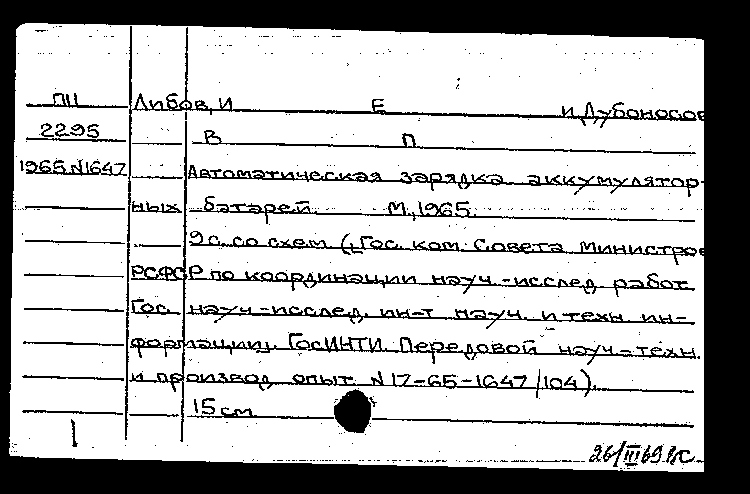 ПШ Либов, И Е и Дубоносов
2295 В П
1965 N1647 Автоматическая зарядка аккумулятор-
ных батарей. М., 1965.
9 с. со схем (Гос. ком. Совета Министров
РСФСР по координации науч.-исслед. работ.
Гос. науч.-исслед. ин-т науч. и техн. ин-
формации. ГосИНТИ. Передовой науч.-техн.
и производ. опыт. N 17-65-1647/104).
15 см
26/III 69